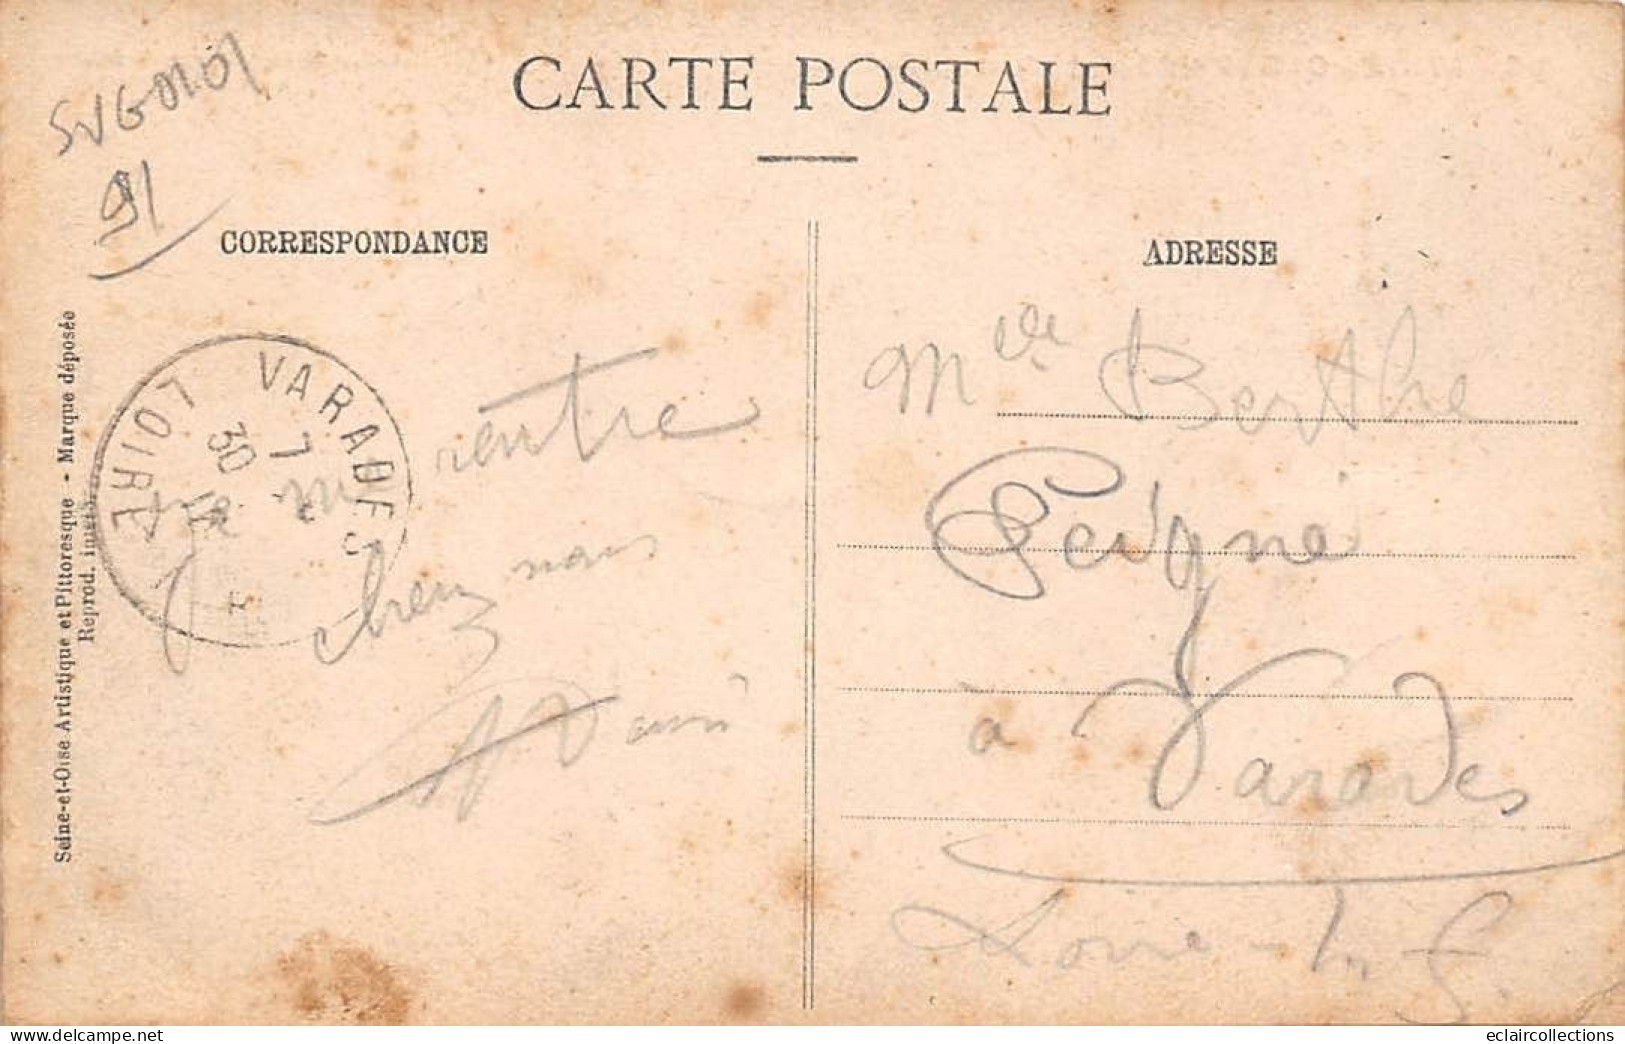 CARTE POSTALE
91
CORRESPONDANCE
ADRESSE
Seine-et-Oise Artistique et Pittoresque - Marque déposée
Reprod. inter.
VARADES
LOIRE
7
30
rentre
chez nous
Mlle Berthe
Peigné
à Varades
Loire-Inf.
eclaircollections | www.delcampe.net